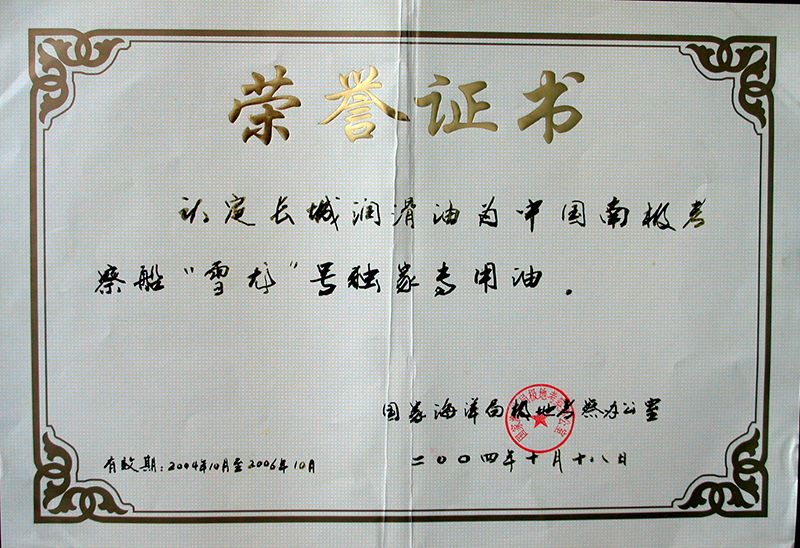 荣誉证书
认定长城润滑油为中国南极考
察船“雪龙”号独家专用油.
国家海洋局极地考察办公室
有效期:2004年10月至2006年10月
二〇〇四年十月十八日